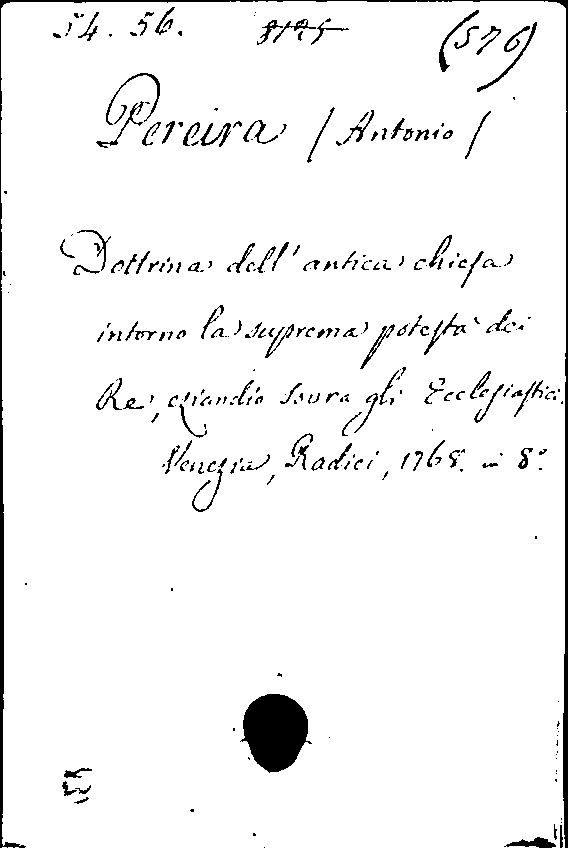 54. 56. 8125 (576)
Pereira / Antonio /
Dottrina dell' antica chiesa
intorno la suprema potestà dei
Re, eziandio sovra gli Ecclesiastici.
Venezia, Radici, 1768. in 8°.